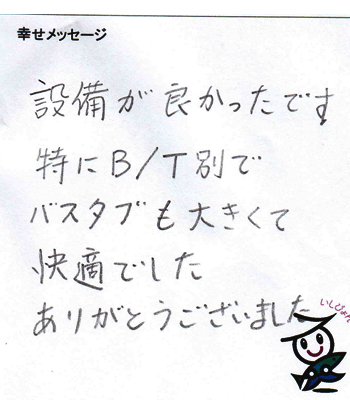 幸せメッセージ
設備が良かったです
特にB/T別で
バスタブも大きくて
快適でした
ありがとうございました